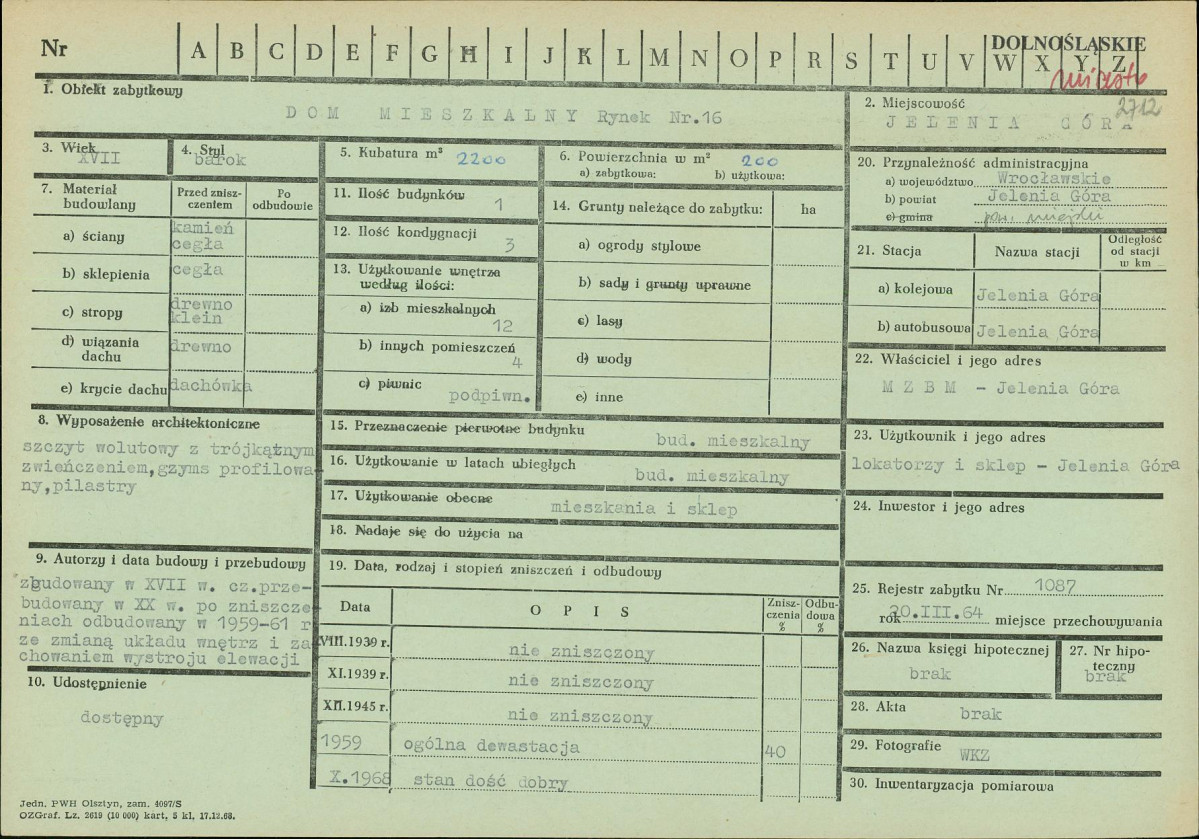 Nr A B C D E F G H I J K L M N O P R S T U V W X Y Z
DOLNOŚLĄSKIE
miasto
2712
1. Obiekt zabytkowy
DOM MIESZKALNY Rynek Nr.16
2. Miejscowość
JELENIA GÓRA
3. Wiek
XVII
4. Styl
barok
5. Kubatura m³ 2200
6. Powierzchnia w m² 200
a) zabytkowa: b) użytkowa:
7. Materiał budowlany
Przed zniszczeniem
Po odbudowie
a) ściany
kamień
cegła
b) sklepienia
cegła
c) stropy
drewno
klein
d) wiązania dachu
drewno
e) krycie dachu
dachówka
8. Wyposażenie architektoniczne
szczyt wolutowy z trójkątnym
zwieńczeniem,gzyms profilowa
ny,pilastry
9. Autorzy i data budowy i przebudowy
zbudowany w XVII w. cz.prze-
budowany w XX w. po zniszcze
niach odbudowany w 1959-61 r
ze zmianą układu wnętrz i za
chowaniem wystroju elewacji
10. Udostępnienie
dostępny
11. Ilość budynków
1
12. Ilość kondygnacji
3
13. Użytkowanie wnętrza
według ilości:
a) izb mieszkalnych
12
b) innych pomieszczeń
4
c) piwnic
podpiwn.
14. Grunty należące do zabytku:
ha
a) ogrody stylowe
b) sady i grunty uprawne
c) lasy
d) wody
e) inne
15. Przeznaczenie pierwotne budynku
bud. mieszkalny
16. Użytkowanie w latach ubiegłych
bud. mieszkalny
17. Użytkowanie obecne
mieszkania i sklep
18. Nadaje się do użycia na
19. Data, rodzaj i stopień zniszczeń i odbudowy
Data OPIS Zniszczenia % Odbudowa %
VIII.1939 r. nie zniszczony
XI.1939 r. nie zniszczony
XII.1945 r. nie zniszczony
1959 ogólna dewastacja 40
X.1968 stan dość dobry
20. Przynależność administracyjna
a) województwo Wrocławskie
b) powiat Jelenia Góra
c) gmina pow. miejski
21. Stacja
Nazwa stacji
Odległość od stacji w km
a) kolejowa Jelenia Góra
b) autobusowa Jelenia Góra
22. Właściciel i jego adres
MZBM - Jelenia Góra
23. Użytkownik i jego adres
lokatorzy i sklep - Jelenia Góra
24. Inwestor i jego adres
25. Rejestr zabytku Nr 1087
rok 20.III.64 miejsce przechowywania
26. Nazwa księgi hipotecznej
brak
27. Nr hipoteczny
brak
28. Akta
brak
29. Fotografie
WKZ
30. Inwentaryzacja pomiarowa
Jedn. PWH Olsztyn, zam. 4097/S
OZGraf. Lz. 2619 (10 000) kart. 5 kl, 17.12.68.